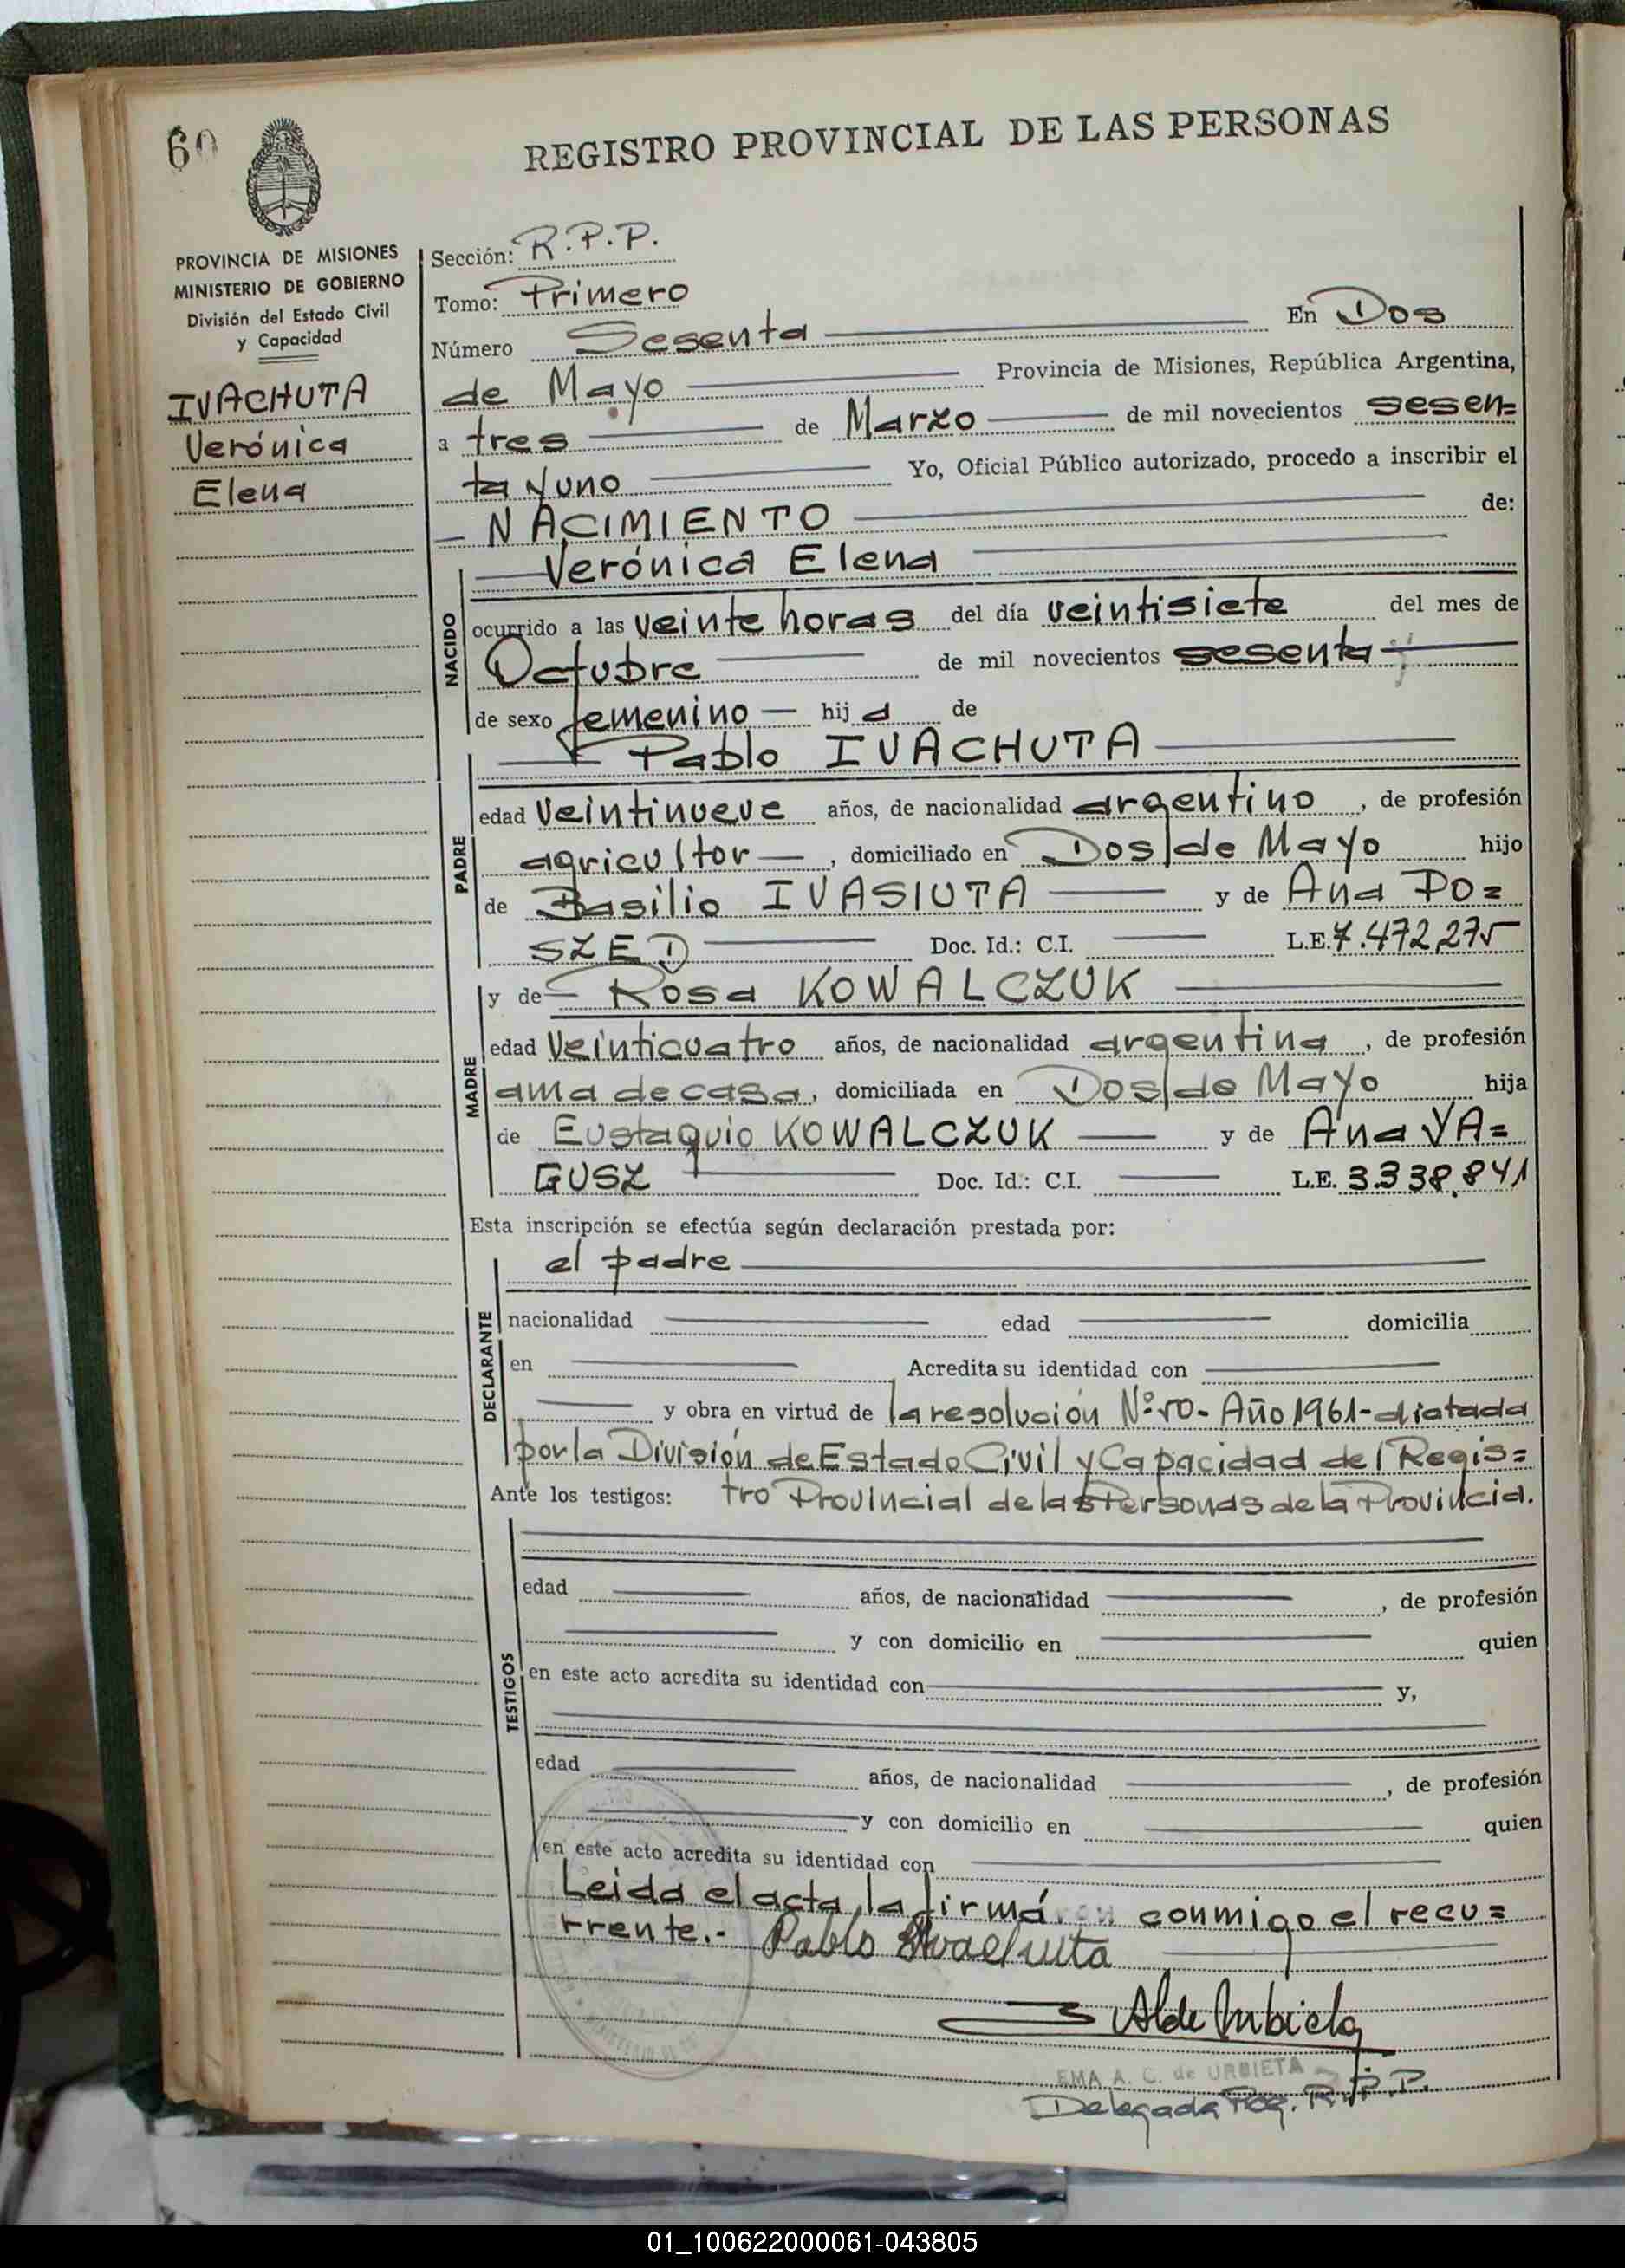 60
REGISTRO PROVINCIAL DE LAS PERSONAS
PROVINCIA DE MISIONES
MINISTERIO DE GOBIERNO
División del Estado Civil
y Capacidad
IVACHUTA
Verónica
Elena
Sección: R.P.P.
Tomo: Primero
Número Sesenta En Dos
de Mayo Provincia de Misiones, República Argentina,
a tres de Marzo de mil novecientos sesen=
ta y uno Yo, Oficial Público autorizado, procedo a inscribir el
NACIMIENTO de:
Verónica Elena
NACIDO
ocurrido a las veinte horas del día veintisiete del mes de
Octubre de mil novecientos sesenta
de sexo femenino hija de
Pablo IVACHUTA
PADRE
edad veintinueve años, de nacionalidad argentino, de profesión
agricultor, domiciliado en Dos de Mayo hijo
de Basilio IVASIUTA y de Ana PO=
SZED Doc. Id.: C.I. L.E. 7.472,275
y de Rosa KOWALCZUK
MADRE
edad veinticuatro años, de nacionalidad argentina, de profesión
ama de casa, domiciliada en Dos de Mayo hija
de Eustaquio KOWALCZUK y de Ana YA=
GUSZ Doc. Id.: C.I. L.E. 3.338.841
Esta inscripción se efectúa según declaración prestada por:
el padre
DECLARANTE
nacionalidad edad domicilia
en Acredita su identidad con
y obra en virtud de la resolución Nº 50- Año 1961- dictada
por la División de Estado Civil y Capacidad del Regis=
Ante los testigos: tro Provincial de las Personas de la Provincia.
TESTIGOS
edad años, de nacionalidad, de profesión
y con domicilio en quien
en este acto acredita su identidad con y,
edad años, de nacionalidad, de profesión
y con domicilio en quien
en este acto acredita su identidad con
Leida el acta, la firmá conmigo el recu=
rrente.- Pablo Ivachuta
A de Urbieta
EMA A. C. de URBIETA
Delegada Reg. R.P.P.
01_100622000061-043805